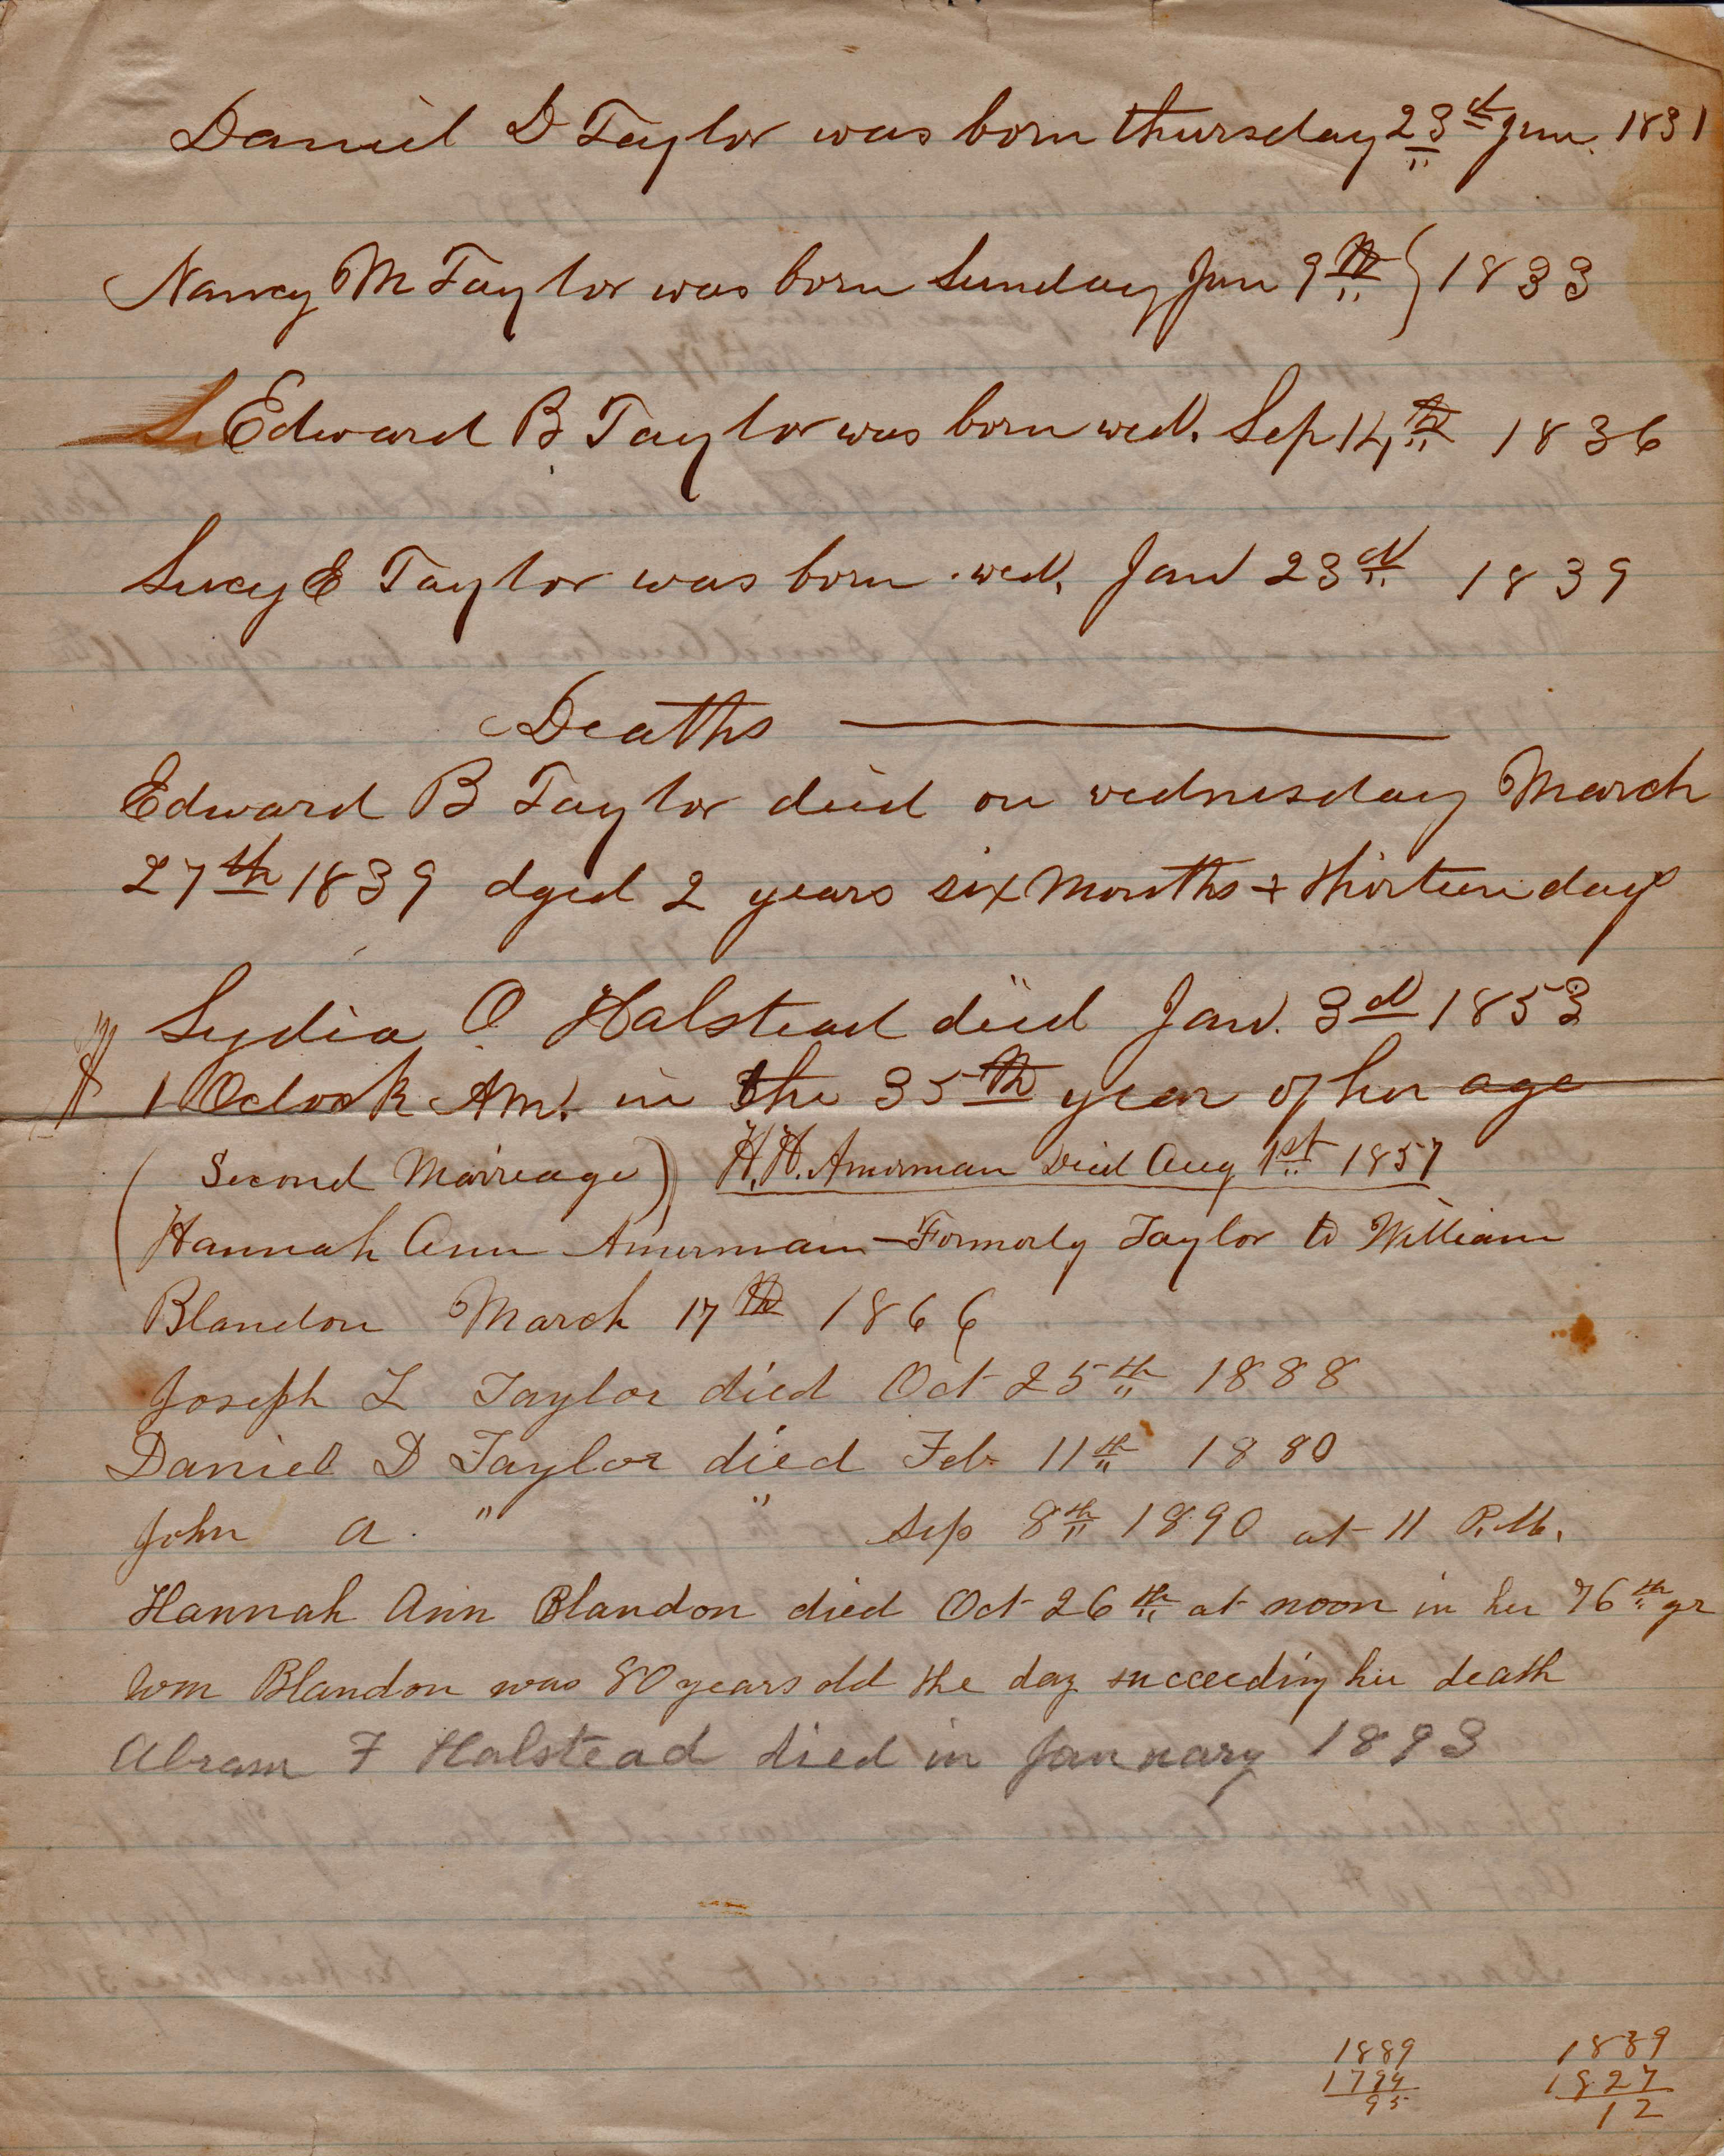 Daniel D Taylor was born thursday 23d Jun. 1831
Nancy M Taylor was born Sunday Jun 9th } 1833
Edward B Taylor was born wed. Sep 14th 1836
Lucy E Taylor was born wed. Jan 23d 1839
Deaths
Edward B Taylor died on wednesday March
27th 1839 aged 2 years six Months + thirteen days
Lydia O Halstead died Jan. 3d 1853
1 Oclock AM. in the 35th year of her age
(Second Marreage) H.H. Amerman Died Aug 1st 1857
(Hannah Ann Amerman - Formorly Taylor to William
Blandon March 17th 1866
Joseph L Taylor died Oct 25th 1888
Daniel D Taylor died Feb 11th 1880
John A. " " Sep 8th 1890 at 11 P.M.
Hannah Ann Blandon died Oct 26th at noon in her 76th yr
Wm Blandon was 80 years old the day succeeding her death
Abram F Halstead died in January 1893
1889 1839
1794 1827
95 12